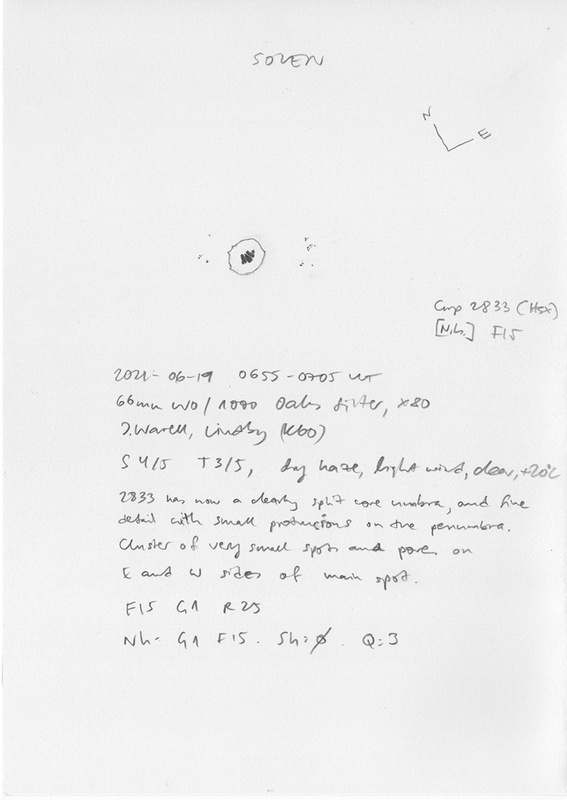 SOLEN
N
E
Grp 2833 (Hsx)
[N.h.] F15
2021-06-19 0655-0705 UT
66mm WO/1000 Oaks filter, x80
J. Warell, Lindby (K60)
S 4/5 T 3/5, day haze, light wind, clear, +20°C
2833 has now a clearly split core umbra, and fine
detail with small protrusions on the penumbra.
Cluster of very small spots and pores on
E and W sides of main spot.
F15 G1 R25
Nh: G1 F15. Sh: ø Q: 3